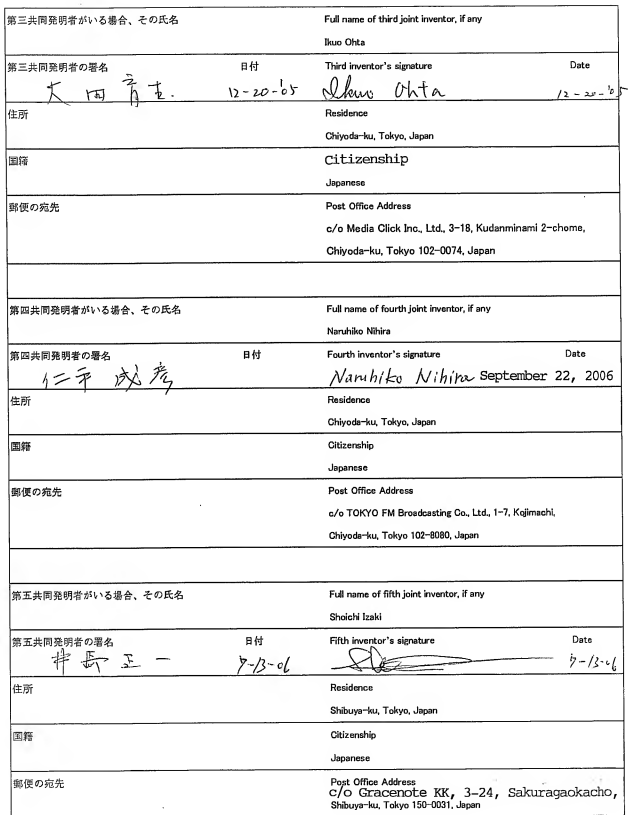 第三共同発明者がいる場合、その氏名 Full name of third joint inventor, if any
Ikuo Ohta
第三共同発明者の署名 日付 Third inventor's signature Date
太田育生 12-20-'05 Ikuo Ohta 12-20-'05
住所 Residence
Chiyoda-ku, Tokyo, Japan
国籍 Citizenship
Japanese
郵便の宛先 Post Office Address
c/o Media Click Inc., Ltd., 3-18, Kudanminami 2-chome,
Chiyoda-ku, Tokyo 102-0074, Japan
第四共同発明者がいる場合、その氏名 Full name of fourth joint inventor, if any
Naruhiko Nihira
第四共同発明者の署名 日付 Fourth inventor's signature Date
仁平 成彦 Naruhiko Nihira September 22, 2006
住所 Residence
Chiyoda-ku, Tokyo, Japan
国籍 Citizenship
Japanese
郵便の宛先 Post Office Address
c/o TOKYO FM Broadcasting Co., Ltd., 1-7, Kojimachi,
Chiyoda-ku, Tokyo 102-8080, Japan
第五共同発明者がいる場合、その氏名 Full name of fifth joint inventor, if any
Shoichi Izaki
第五共同発明者の署名 日付 Fifth inventor's signature Date
正一 7-13-06 7-13-06
住所 Residence
Shibuya-ku, Tokyo, Japan
国籍 Citizenship
Japanese
郵便の宛先 Post Office Address
c/o Gracenote KK, 3-24, Sakuragaokacho,
Shibuya-ku, Tokyo 150-0031, Japan